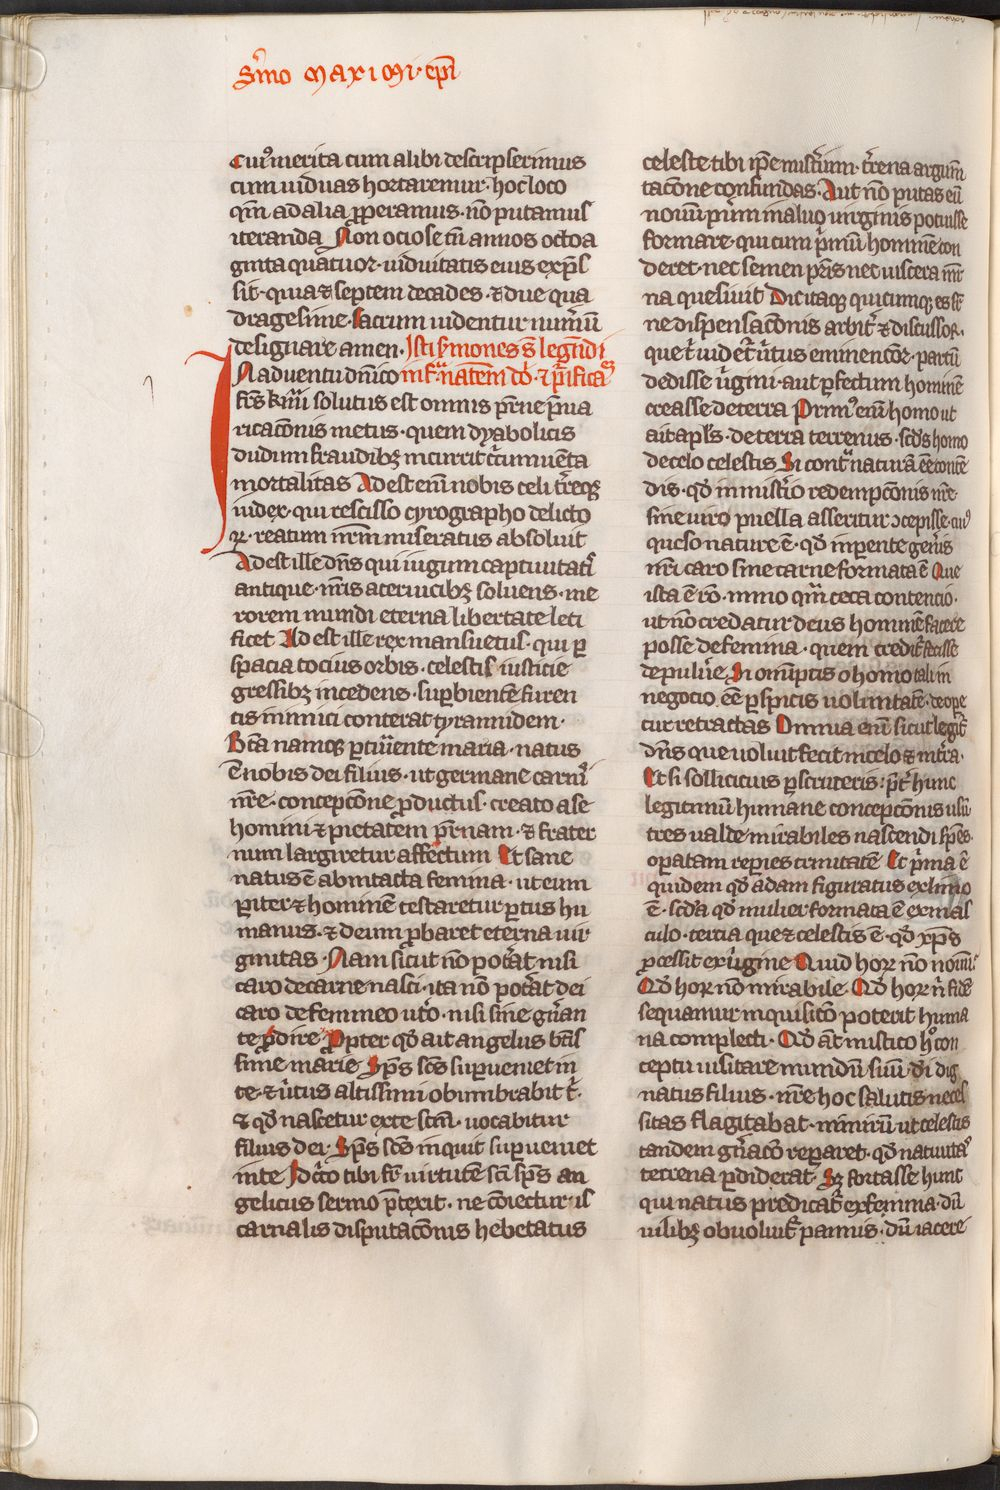 Sermo maximi epi
Cuius merita cum alibi descripserimus
cum uiduas hortaremur · hoc loco
qm ad alia properamus · no putamus
iteranda Non ociose tn annos octoa
ginta quatuor · uiduitatis eius expres
sit · quia & septem decades · & due qua
dragesime · sacrum uidentur numeru
designare amen · Isti sermones st legendi
In aduentu dnico infra natiem do · & purifica
frs kmi solutus est omnis prne preua
ricaconis metus · quem dyabolicis
dudum fraudibz incurrit circumuenta
mortalitas Adest eni nobis celi treqz
iudex · qui rescisso cyrographo delicto
r · reatum nrm miseratus absoluit
Adest ille dns qui iugum captiuitatis
antique · nris a ceruicibz soluens · me
rorem mundi eterna libertate leti
ficet Adest ille rex mansuetus · qui p
spacia tocius orbis · celestis iusticie
gressibz incedens · supbientē furen
tis inimici conterat tyrannidem ·
Bta namqz parturiente maria · natus
ē nobis dei filius · ut germane carnis
nre · concepcone productus · creato a se
homini & pietatem prnam · & frater
num largiretur affectum Et sane
natus ē ab intacta femina · ut eum
pariter & hominē testaretur partus hu
manus · & deum probaret eterna uir
ginitas · Nam sicut no poterat nisi
caro de carne nasci · ita non poterat dei
caro de femineo utero · nisi sine gnran
te prodire Propter qd ait angelus beatis
sime marie Sps scs supueniet in
te · & uirtus altissimi obumbrabit ti
& qd nascetur ex te scm · uocabitur
filius dei · Sps scs inquit supueniet
in te Idcirco tibi fr uirtutē sci sps an
gelicus sermo preterit · ne coiectur is
carnalis disputaconis hebetatus
celeste tibi ipse misterium · terrena argum
tacone confundas · Aut no putas eu
nouum puerum in aluo uirginis potuisse
formare · qui cum primu hominē con
deret · nec semen patris nec uiscera mat
na quesiuit Dic itaqz quicumqz es sr
ne dispensaconis arbiter & discussor ·
quet uidetur uirtus eminencior · partu
dedisse uirgini · aut pfectum hominē
creasse de terra Primus eni homo ut
ait apls · de terra terrenus · scds homo
de celo celestis Si contra natura ēē conte
dis · qd in misterio redempconis nre
sine uiro puella asseritur concepisse · cuius
queso nature ē · qd in parente generis
nri caro sine carne formata ē Que
ista ē ro · immo qm ceca contencio ·
ut no credatur deus hominē facere
posse de femina · quem creditur fecisse
de puluere Si omnipotentis o homo tali in
negocio ēē pspicis uoluntatē · de ope
cur retractas Omnia eni sicut legit
dns que uoluit fecit in celo & in terra ·
Et si sollicitius pscruteris · preter hunc
legitimu humane concepconis usu
tres ualde mirabiles nascendi spes
operatam repies trinitatē Et prima ē
quidem qd adam figuratus ex limo
ē · scda qd mulier formata ē ex mas
culo · tercia que & celestis ē · qd xps
processit ex uirgine Quid horum no nouum
Qd horum no mirabile · Qd horum ni fide
sequamur inquisito poterit huma
na complecti · Qd at mistico hoc con
ceptu uisitare mundu suu · di dig
natus filius · nre hoc salutis neces
sitas flagitabat · nimiru ut celestis
tandem gnraco reparet · qd natiuitas
terrena pdiderat · Sz fortasse hunc
qui natus predicatur ex femina · du
uilibz obuoluitur pannis · du iacere